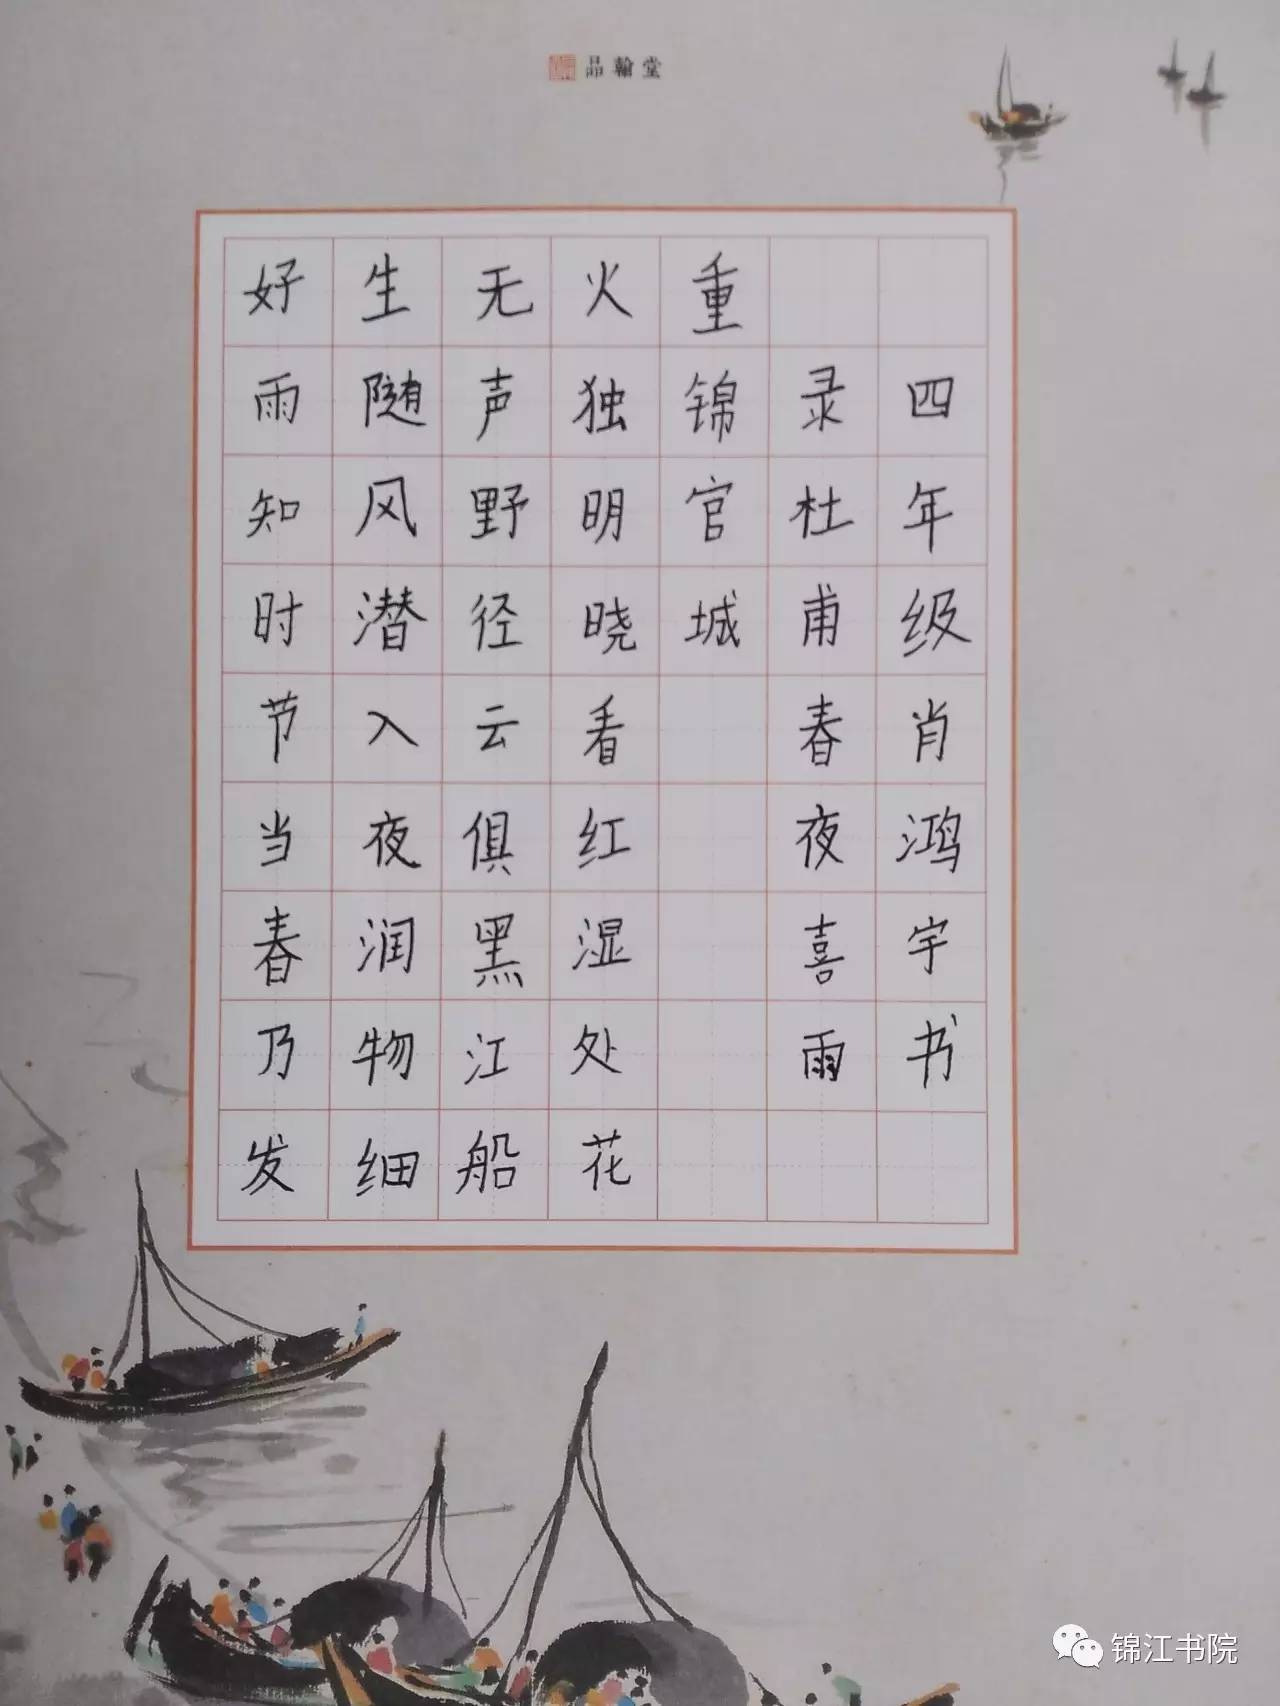 品翰堂
好雨知时节当春乃发
生随风潜入夜润物细
无声野径云俱黑江船
火独明晓看红湿处花
重锦官城
录杜甫春夜喜雨
四年级肖鸿宇书
锦江书院